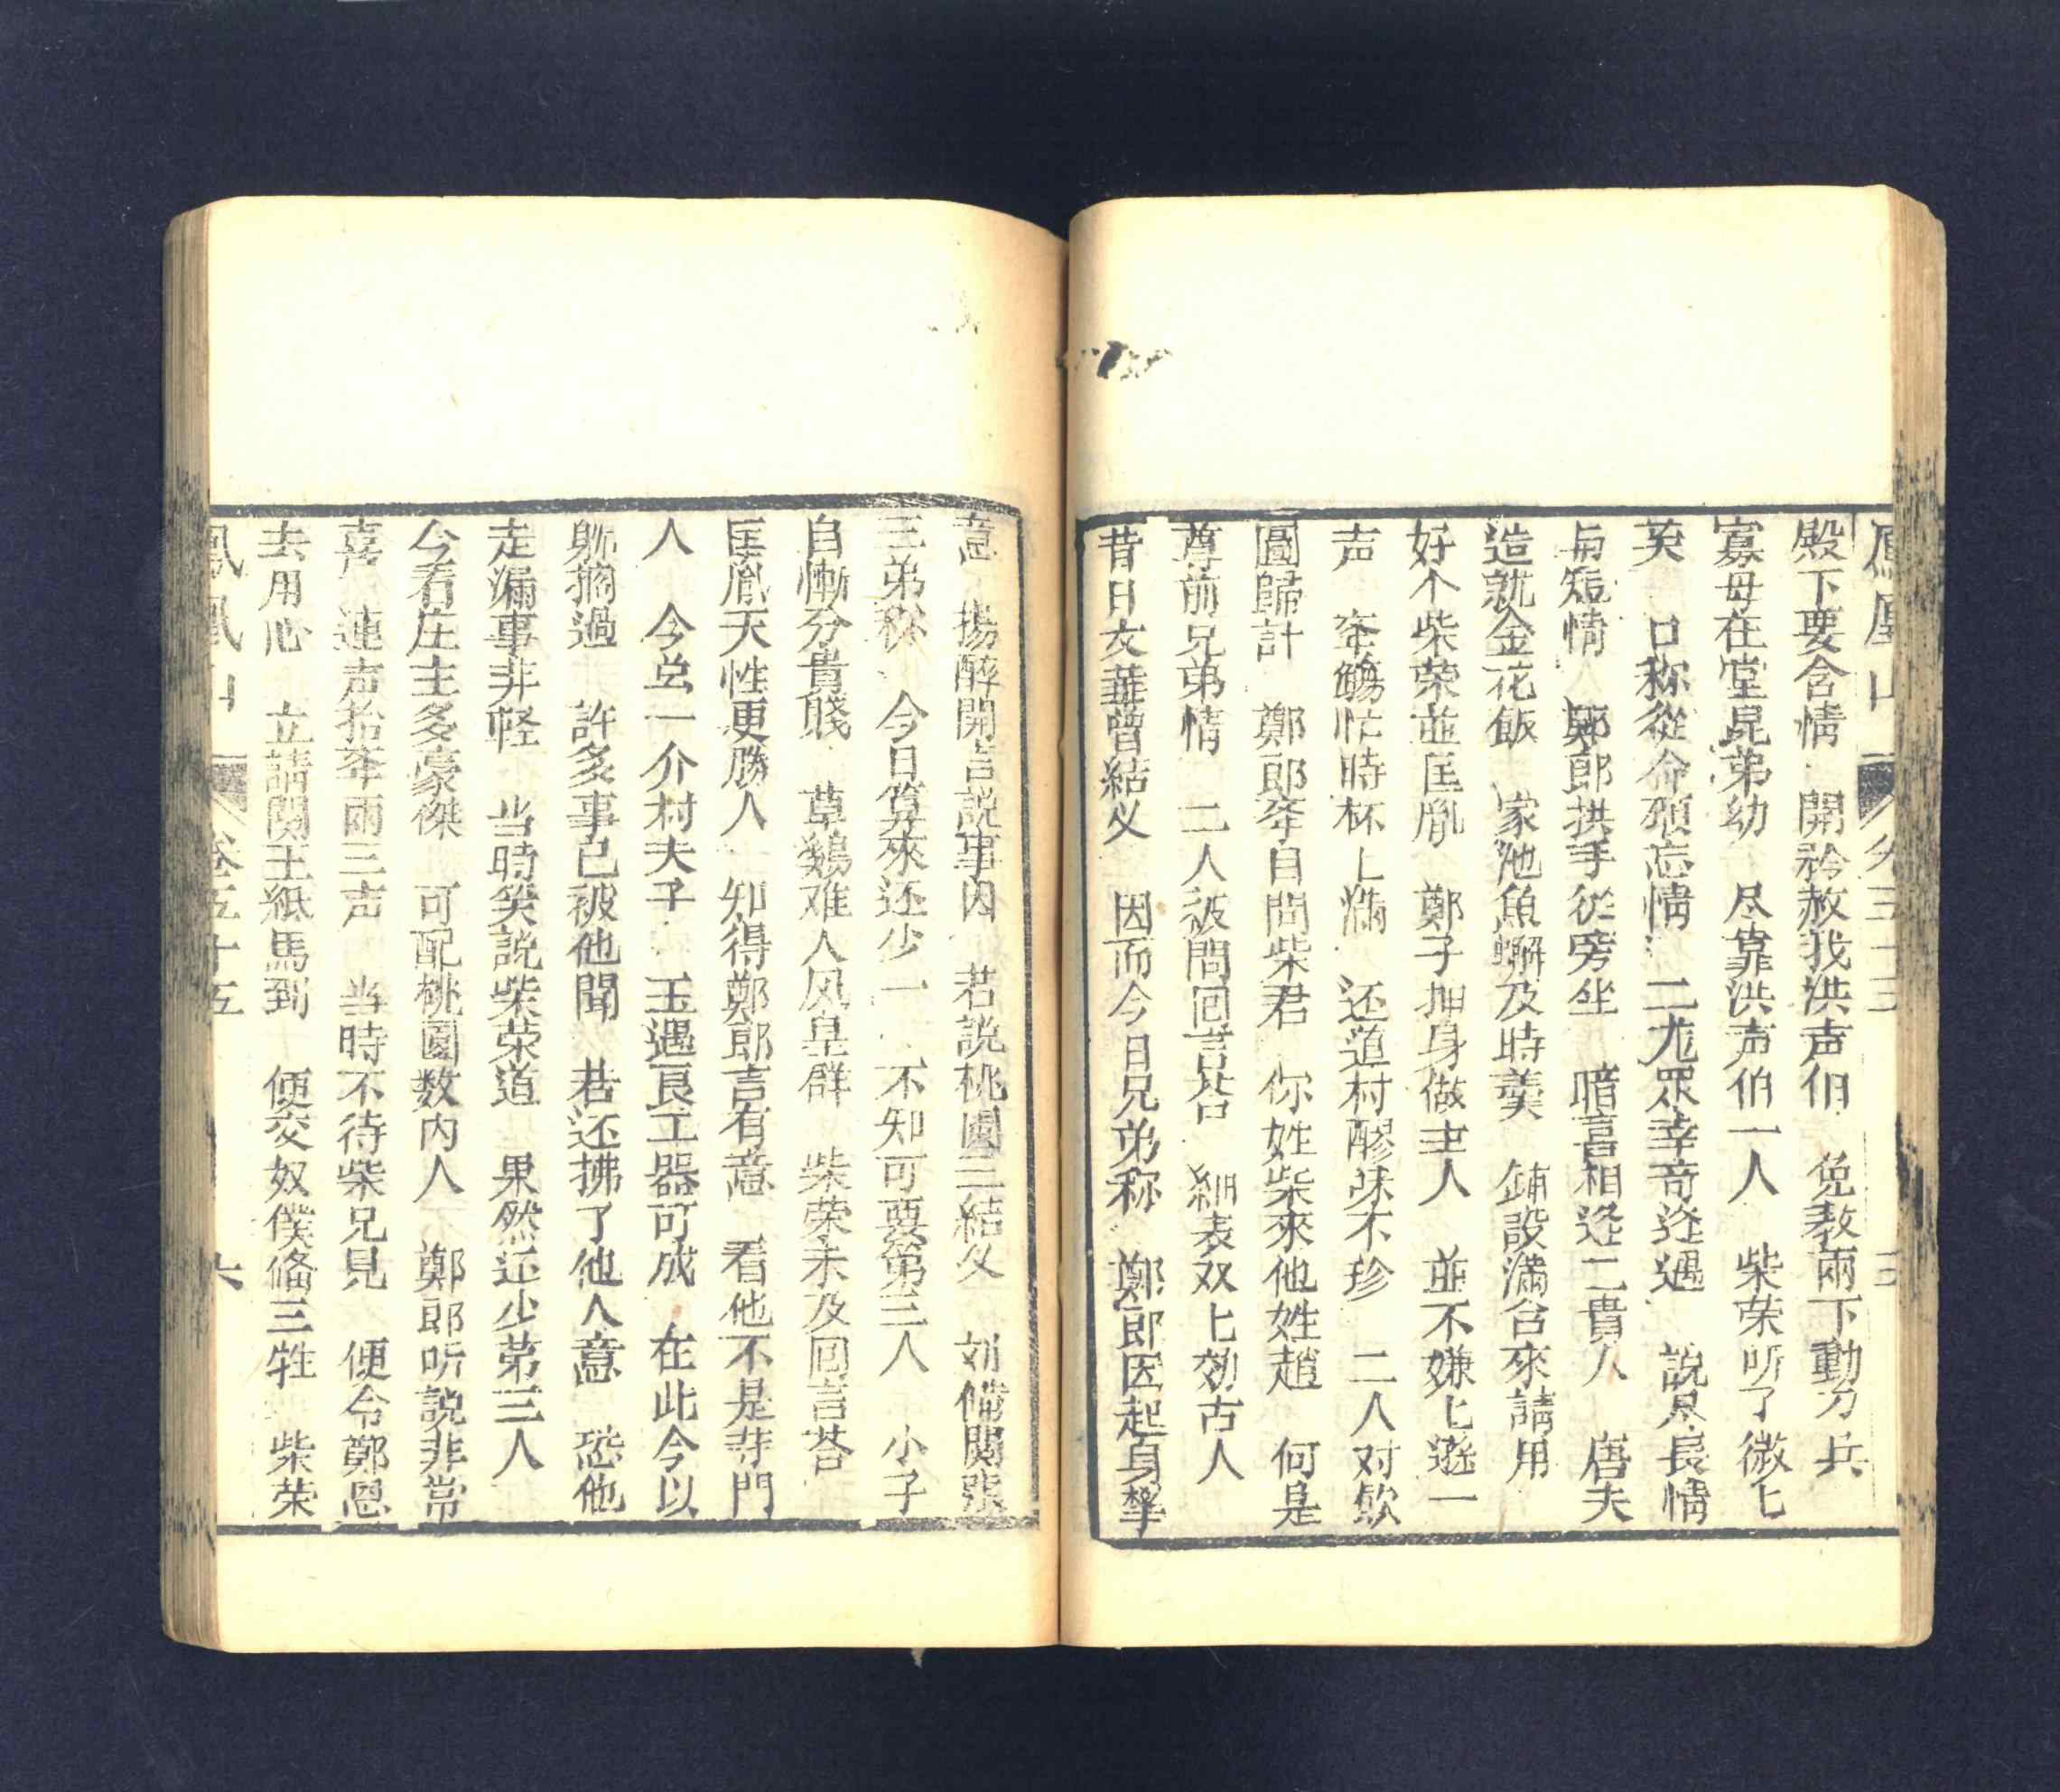 殿下要含情 開衿赦我洪声伯 免教兩下動刀兵
寡母在堂昆弟幼 尽靠洪声伯一人 柴荣听了微匕
笑 口称從命頓忘情 二尤眾幸竒逢遇 說尽長情
与短情 鄭郎拱手從旁坐 暗喜相逢二貴人 唐夫
造就金花飯 家池魚蠏及時羹 鋪設滿台來請用
好个柴荣並匡胤 鄭子抽身做主人 並不嫌匕遜一
声 奉觴忙時杯上滿 还道村醪味不珍 二人对飲
圓歸計 鄭郎舉目問柴君 你姓柴來他姓趙 何是
尊前兄弟情 二人被問回言荅 細表双匕効古人
昔日友華曾結义 因而今日兄弟称 鄭郎因起身擎
意 揚醉開言說事因 若說桃園三結义 刘備関張
三弟称 今日算來还少一 不知可要第三人 小子
自慚分貴賤 草鷄难入凤皇群 柴荣未及回言荅
匡胤天性更勝人 知得鄭郎言有意 看他不是寻門
人 今㒷一介村夫子 玉遇良工器可成 在此今以
躭擱過 許多事已被他聞 若还拂了他人意 恐他
走漏事非輕 当時笑說柴荣道 果然还少第三人
今看庄主多豪傑 可配桃園数内人 鄭郎听說非常
喜 連声抬奉兩三声 当時不待柴兄見 便令鄭恩
去用心 立請関王紙馬到 便交奴僕俻三牲 柴荣
鳳凰山 卷五十五 六